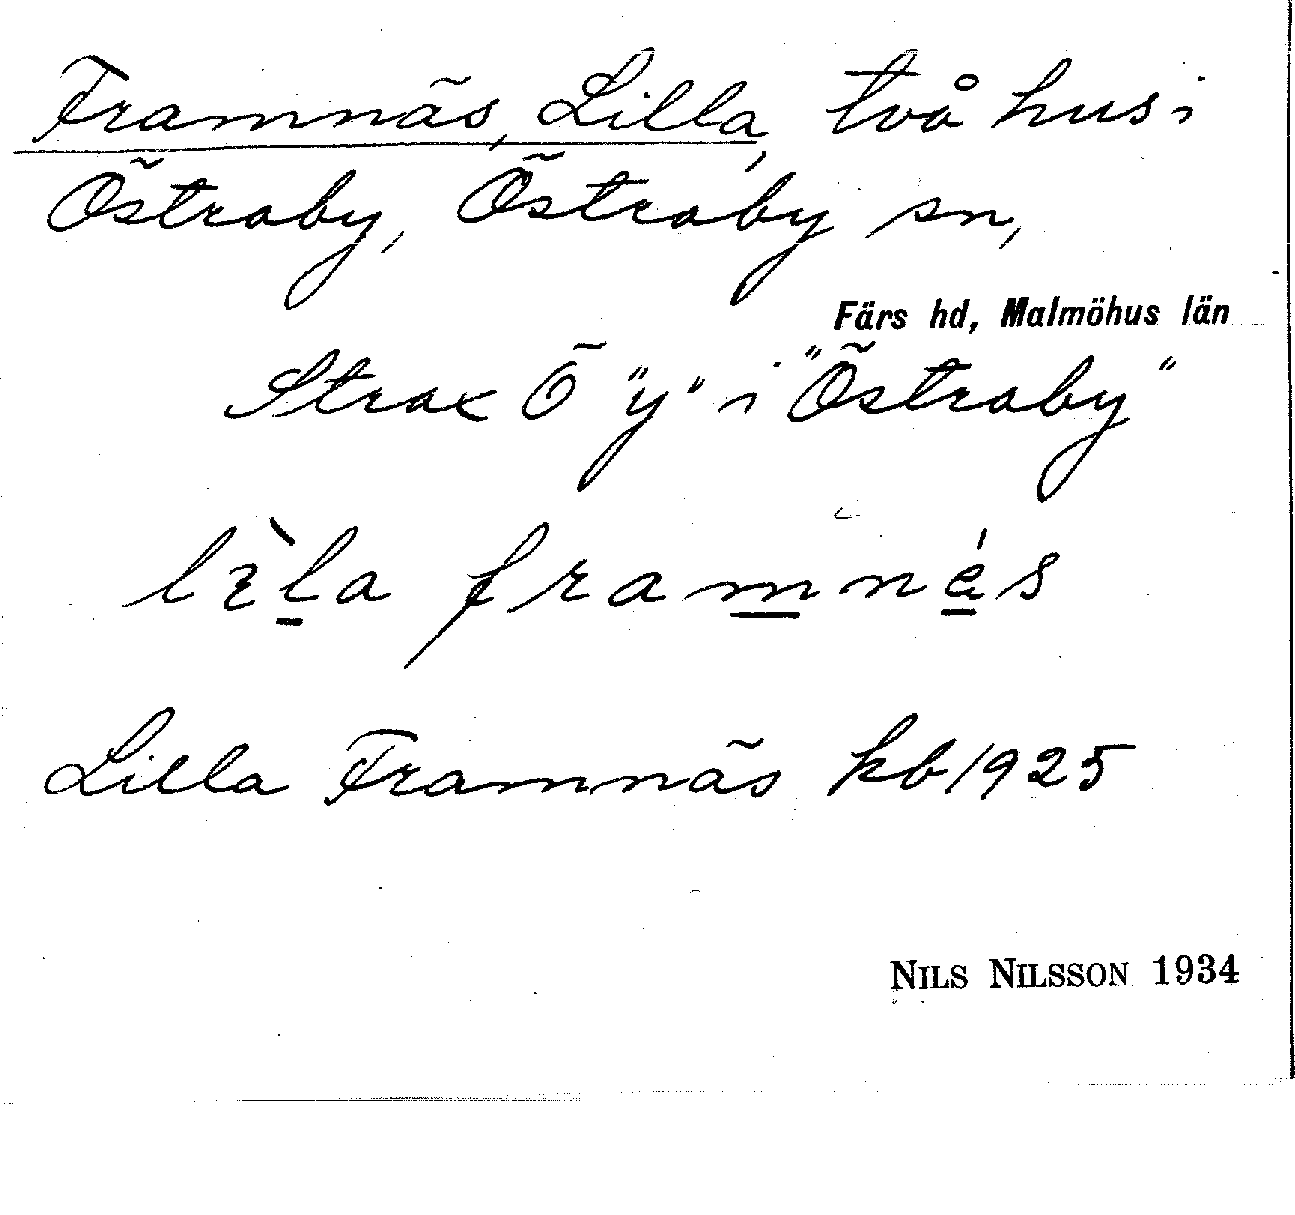 Framnäs, Lilla, två hus i
Östraby, Östraby sn,
Färs hd, Malmöhus län
Strax Ö "y" i "Östraby"
Lilla Framnäs kb 1925
NILS NILSSON 1934